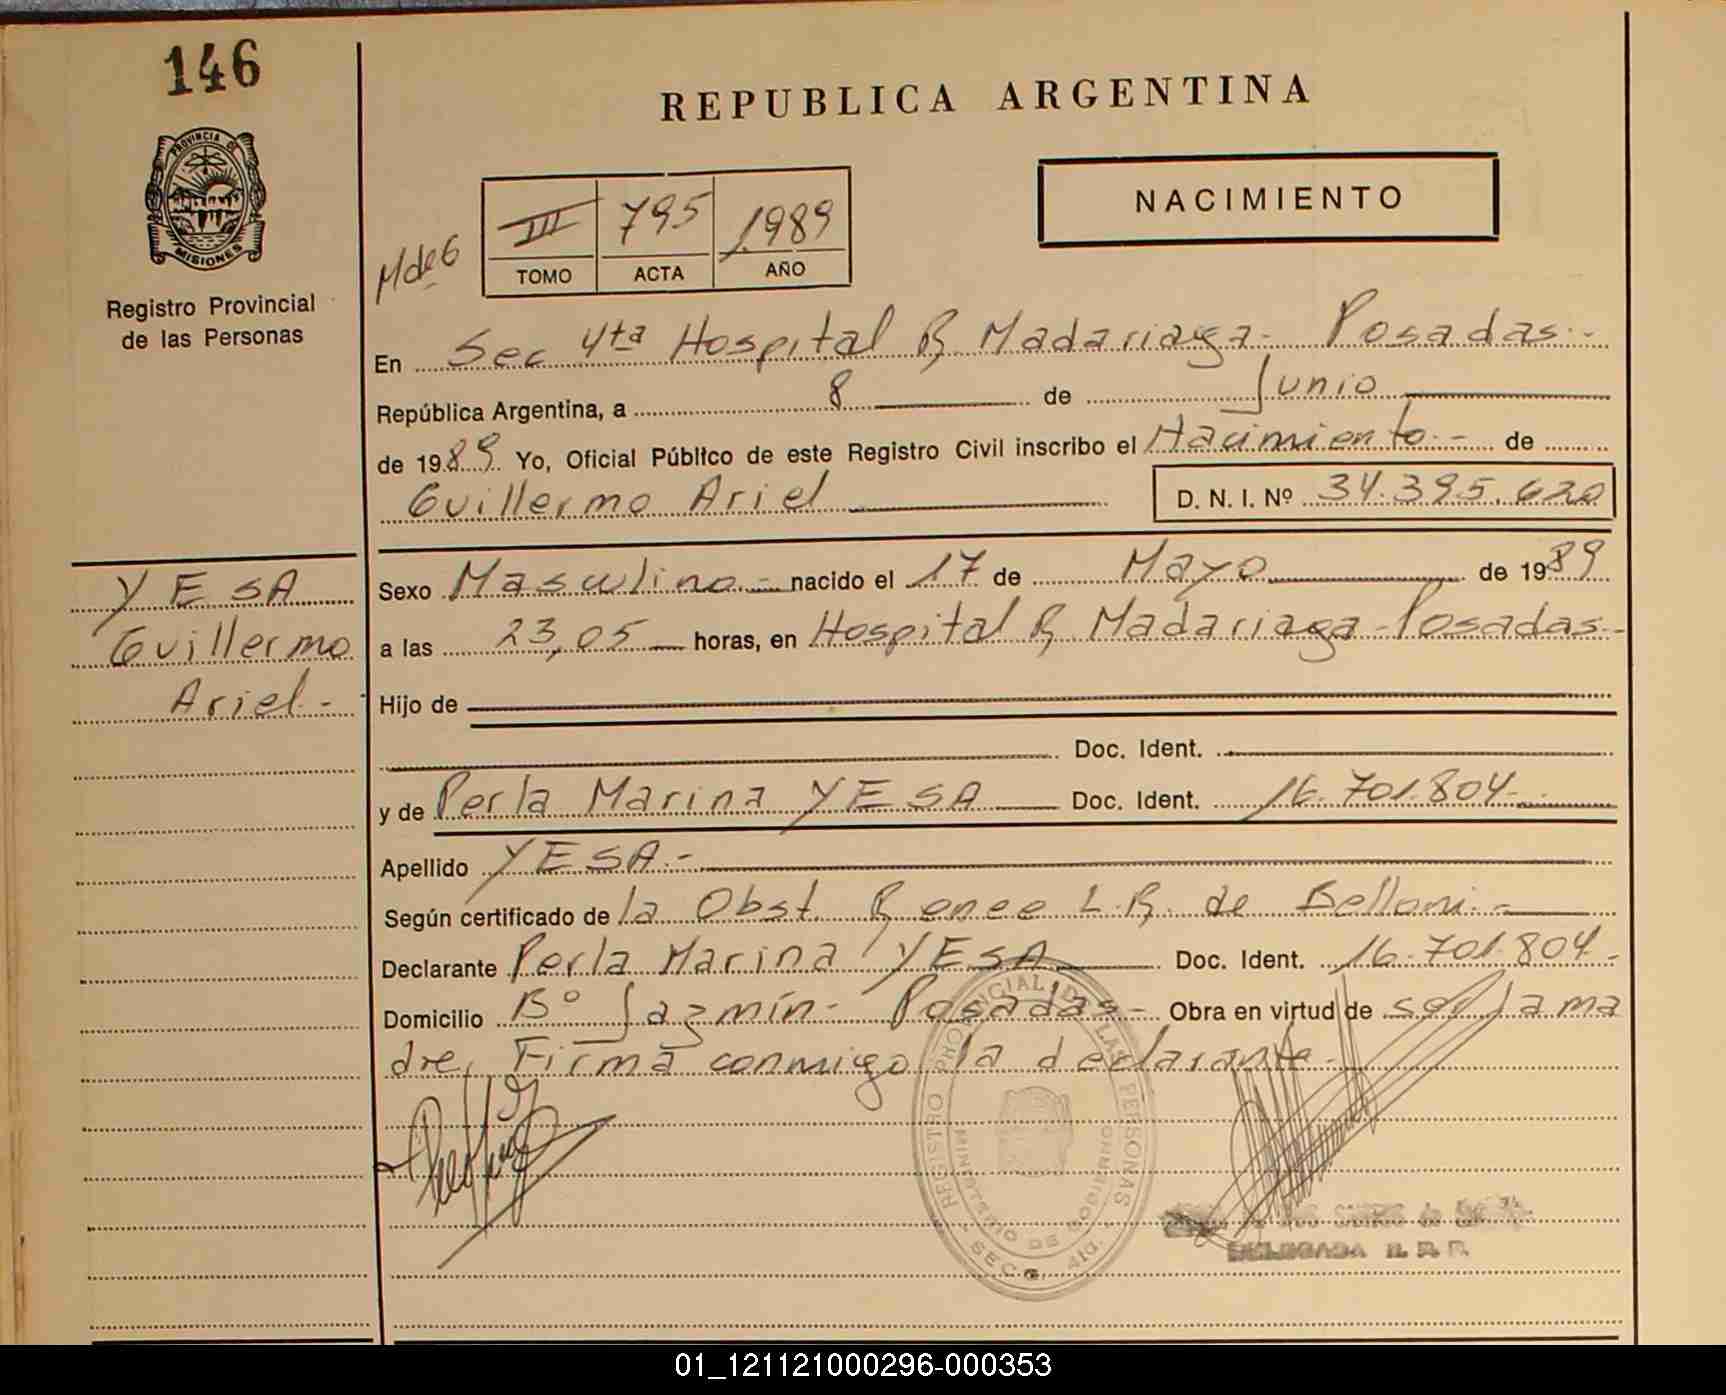 146
REPUBLICA ARGENTINA
NACIMIENTO
PROVINCIA DE
MISIONES
Registro Provincial
de las Personas
M de 6
III 795 1989
TOMO ACTA AÑO
En Sec 4ta Hospital R. Madariaga - Posadas -
República Argentina, a 8 de Junio
de 1989 Yo, Oficial Público de este Registro Civil inscribo el Nacimiento - de
Guillermo Ariel D. N. I. Nº 34.395.620
YESA
Guillermo
Ariel -
Sexo Masculino - nacido el 17 de Mayo de 1989
a las 23,05 horas, en Hospital R. Madariaga - Posadas -
Hijo de
Doc. Ident.
y de Perla Marina YESA Doc. Ident. 16.701.804 -
Apellido YESA -
Según certificado de la Obst. Renee L.R. de Belloni -
Declarante Perla Marina YESA Doc. Ident. 16.701.804 -
Domicilio Bº Jazmín - Posadas - Obra en virtud de ser la ma
dre, Firma conmigo la declarante -
REGISTRO PROVINCIAL DE LAS PERSONAS
MINISTERIO DE GOBIERNO
SECC. 4ta.
DELEGADA R. P. P.
01_121121000296-000353